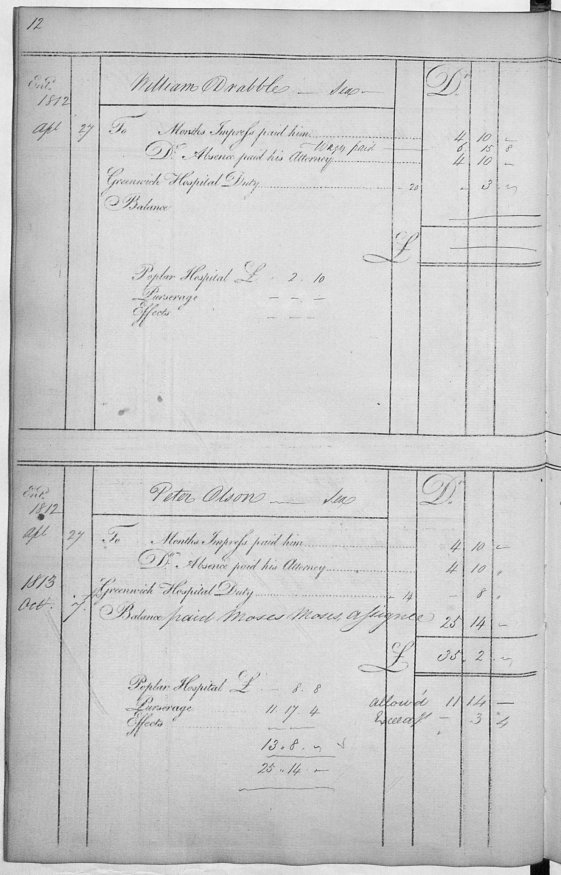 12
Ent.
1812
William Drabble — Sea —
Dr
Apl 27 To Months Impress paid him 4 10 —
Wages paid 6 15 8
Do. Absence paid his Attorney 4 10 —
Greenwich Hospital Duty 20 - 3 -
Balance
£
Poplar Hospital £ - 2 . 10
Purserage — — —
Effects — — —
Ent.
1812
Peter Olson — Sea
Dr
Apl 27 To Months Impress paid him 4 10 —
Do. Absence paid his Attorney 4 10 "
1813
Greenwich Hospital Duty 14 - 8 "
Oct. 7 Balance paid Moses Moses, assignee 25 14 —
£ 35 . 2 . -
Poplar Hospital £ — 8 . 8
Purserage 11 17 4
allow'd 11 14 —
Effects
- 3 4
13 . 8 . -
25 . 14 . -